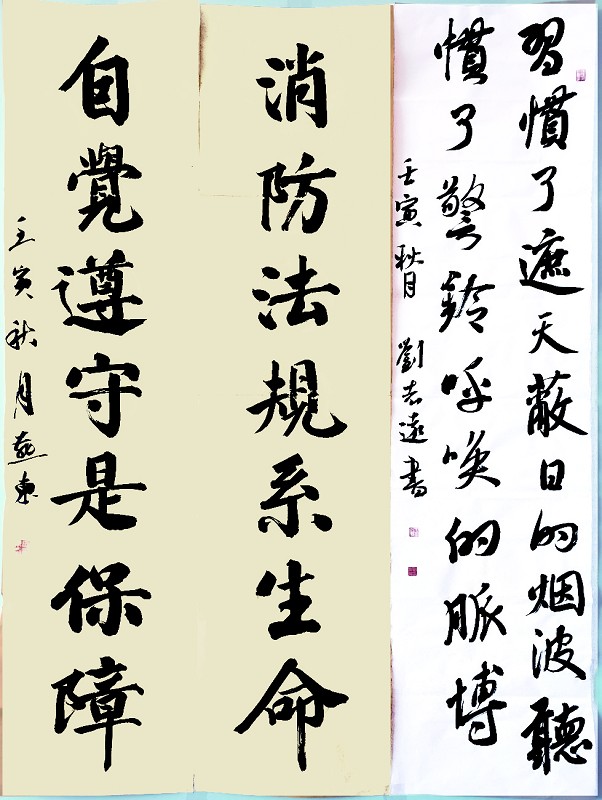 習慣了遮天蔽日的烟波聽
慣了警鈴呼唤的脈博
壬寅秋月 劉志遠書
消防法規系生命
自覺遵守是保障
壬寅秋月燕東